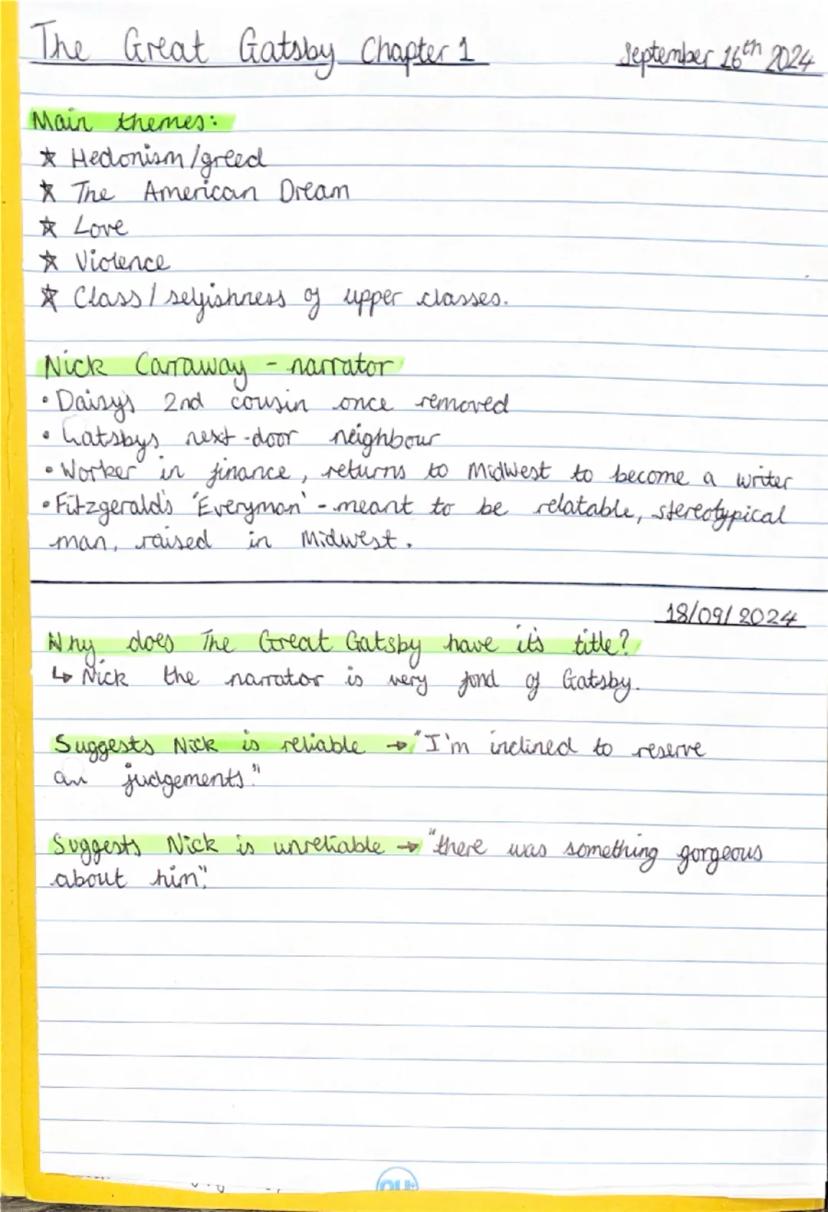 The Great Gatsby Chapter 1
September 16th 2024
Main themes:
☆ Hedonism/greed
☆ The American Dream
☆ Love
☆ Violence
☆ Class/selfishness of upper classes.
Nick Carraway - narrator
• Daisys 2nd cousin once removed
• Gatsbys next-door neighbour
• Worker in finance, returns to Midwest to become a writer
• Fitzgerald's 'Everyman' - meant to be relatable, stereotypical
man, raised in Midwest.
18/09/2024
Why does The Great Gatsby have it's title?
↳ Nick the narrator is very fond of Gatsby.
Suggests Nick is reliable → "I'm inclined to reserve
all judgements"
Suggests Nick is unreliable → "there was something gorgeous
about him".